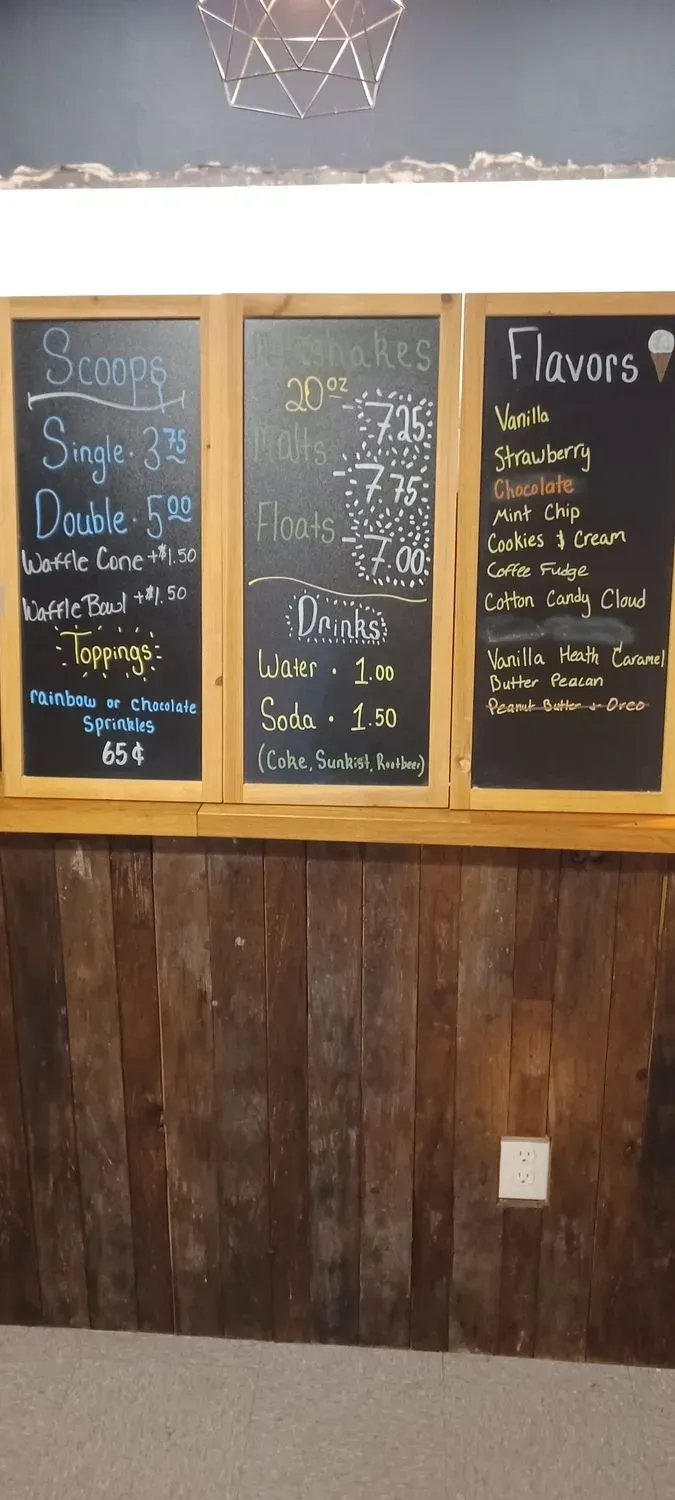 Scoops
Single · 3 75
Double · 5 00
Waffle Cone +$1.50
Waffle Bowl +$1.50
Toppings
rainbow or chocolate
Sprinkles
65¢
Milkshakes
20 oz - 7.25
Malts - 7.75
Floats - 7.00
Drinks
Water · 1.00
Soda · 1.50
(Coke, Sunkist, Rootbeer)
Flavors
Vanilla
Strawberry
Chocolate
Mint Chip
Cookies & Cream
Coffee Fudge
Cotton Candy Cloud
Vanilla Heath Caramel
Butter Peacan
Peanut Butter & Oreo